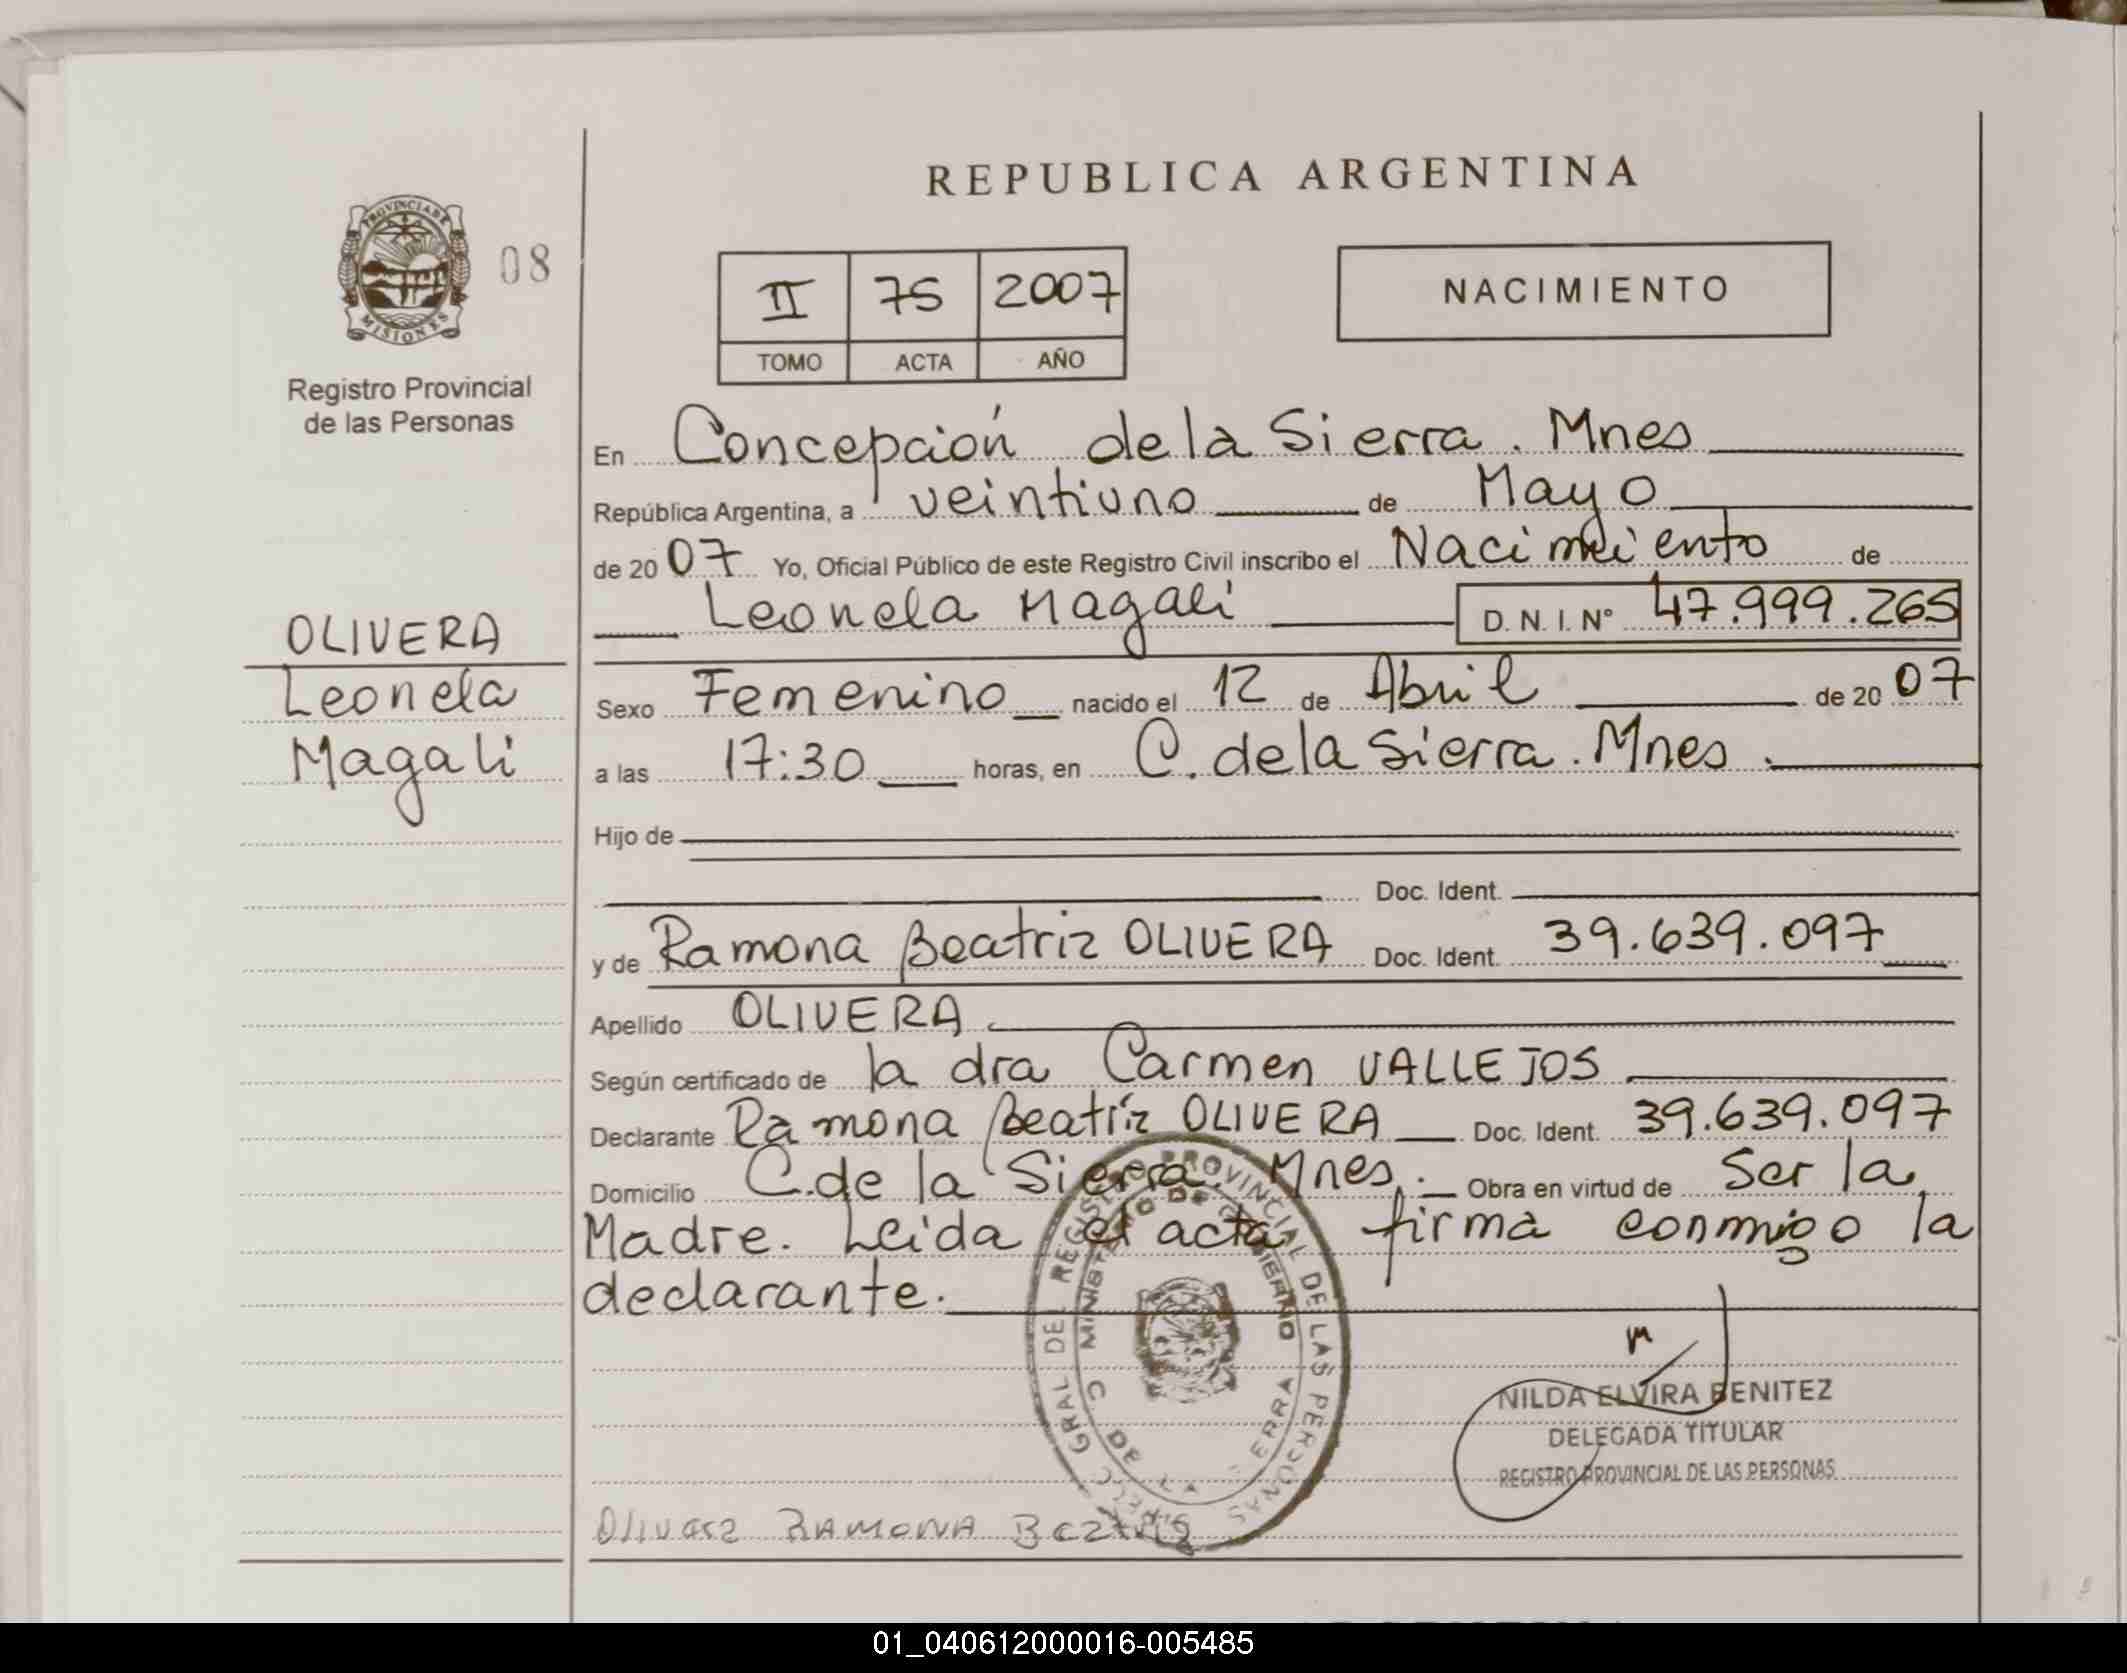 REPUBLICA ARGENTINA
PROVINCIA DE
MISIONES
08
Registro Provincial
de las Personas
II 75 2007
TOMO ACTA AÑO
NACIMIENTO
En Concepción de la Sierra. Mnes
República Argentina, a veintiuno de Mayo
de 2007 Yo, Oficial Público de este Registro Civil inscribo el Nacimiento de
Leonela Magali D. N. I. N° 47.999.265
OLIVERA
Leonela
Magali
Sexo Femenino nacido el 12 de Abril de 2007
a las 17:30 horas, en C. de la Sierra. Mnes.
Hijo de
Doc. Ident.
y de Ramona Beatriz OLIVERA Doc. Ident. 39.639.097
Apellido OLIVERA.
Según certificado de la dra Carmen VALLEJOS
Declarante Ramona Beatriz OLIVERA Doc. Ident. 39.639.097
Domicilio C. de la Sierra. Mnes. Obra en virtud de Ser la
Madre. Leida el acta firma conmigo la
declarante.
GRAL DEL REGISTRO PROVINCIAL DE LAS PERSONAS
MINISTERIO DE GOBIERNO
C. DE LA SIERRA
NILDA ELVIRA BENITEZ
DELEGADA TITULAR
REGISTRO PROVINCIAL DE LAS PERSONAS
Olivera RAMONA Beatriz
01_040612000016-005485